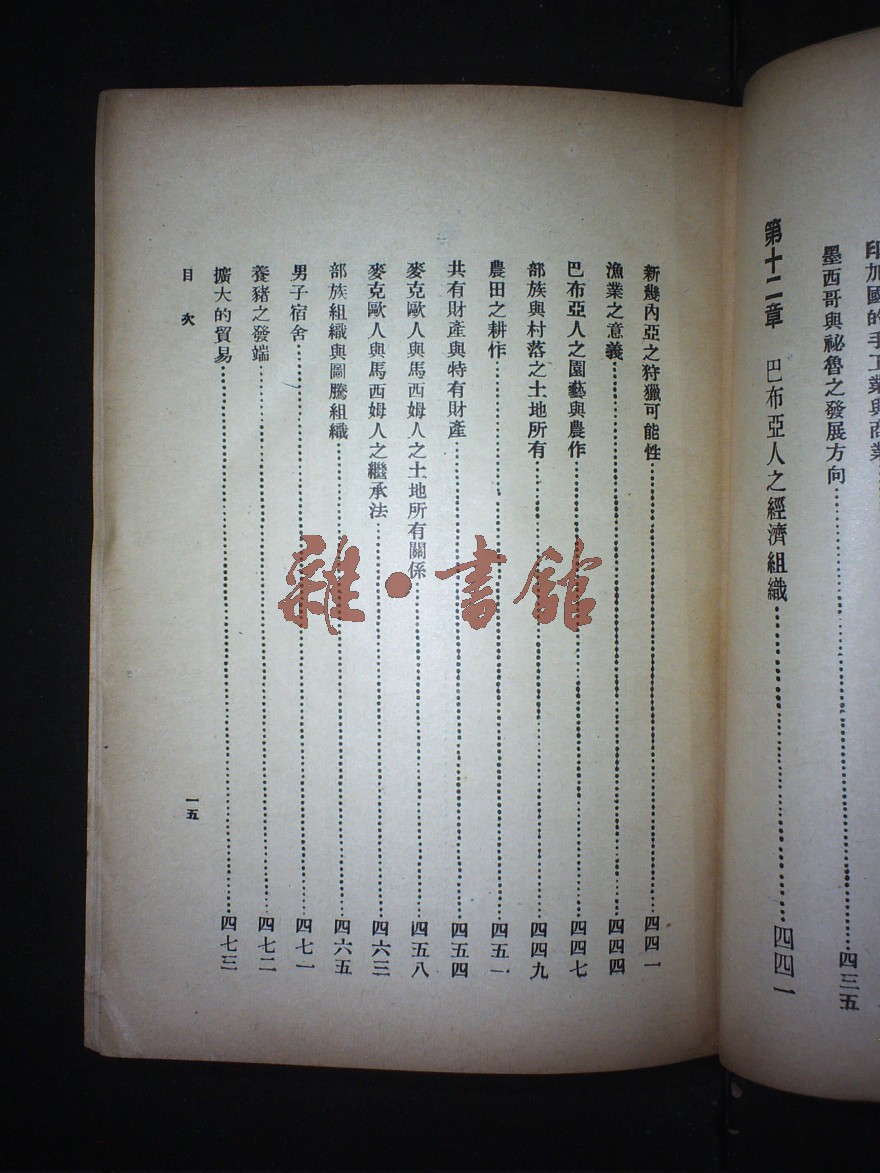 印加國的手工業與商業
墨西哥與祕魯之發展方向……四三五
第十二章 巴布亞人之經濟組織……四四一
新幾內亞之狩獵可能性……四四一
漁業之意義……四四四
巴布亞人之園藝與農作……四四七
部族與村落之土地所有……四四九
農田之耕作……四五一
共有財產與特有財產……四五四
麥克歐人與馬西姆人之土地所有關係……四五八
麥克歐人與馬西姆人之繼承法……四六三
部族組織與圖騰組織……四六五
男子宿舍……四七一
養豬之發端……四七二
擴大的貿易……四七三
目次
一五
雜·書館